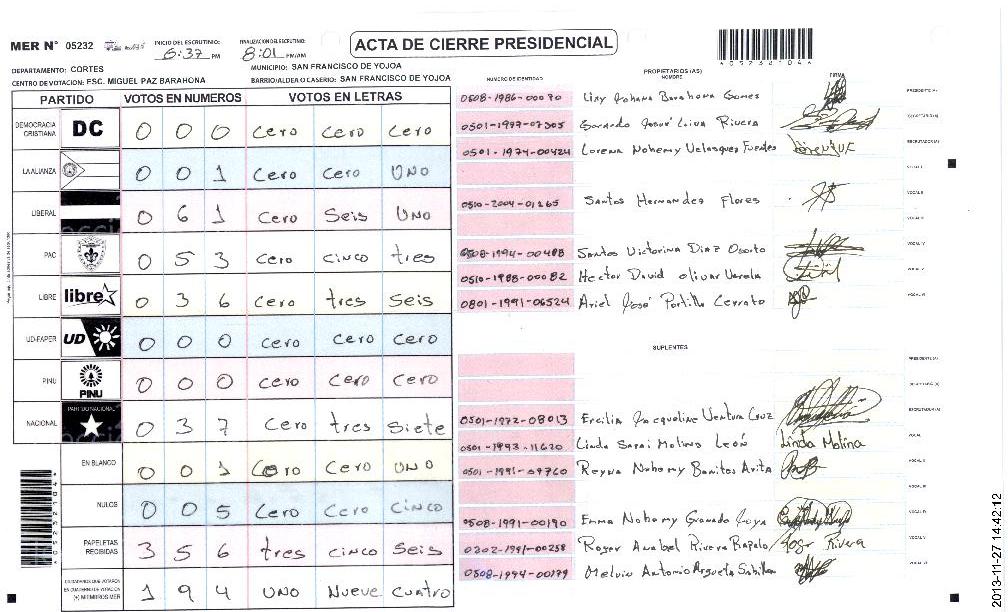 MER N° 05232
INICIO DEL ESCRUTINIO: 6:37 PM
FINALIZACION DEL ESCRUTINIO: 8:01 PM/AM
ACTA DE CIERRE PRESIDENCIAL
DEPARTAMENTO: CORTES
MUNICIPIO: SAN FRANCISCO DE YOJOA
CENTRO DE VOTACION: ESC. MIGUEL PAZ BARAHONA
BARRIO/ALDEA O CASERIO: SAN FRANCISCO DE YOJOA
PARTIDO VOTOS EN NUMEROS VOTOS EN LETRAS
DEMOCRACIA CRISTIANA DC 0 0 0 cero cero cero
LA ALIANZA 0 0 1 cero cero UNO
LIBERAL 0 6 1 cero Seis UNO
PAC 0 5 3 cero cinco tres
LIBRE libre 0 3 6 cero tres seis
UD-FAPER UD 0 0 0 cero cero cero
PINU PINU 0 0 0 cero cero cero
NACIONAL PARTIDO NACIONAL 0 3 7 cero tres siete
EN BLANCO 0 0 1 cero cero UNO
NULOS 0 0 5 cero cero cinco
PAPELETAS RECIBIDAS 3 5 6 tres cinco seis
CIUDADANOS QUE VOTARON EN CUADERNO DE VOTACION (+) MIEMBROS MER 1 9 4 UNO Nueve cuatro
NUMERO DE IDENTIDAD
PROPIETARIOS (AS)
NOMBRE
FIRMA
0508-1986-00070 Lixy Johana Barahona Gomes PRESIDENTE (A)
0501-1997-07305 Josué Leiva Rivera SECRETARIO (A)
0501-1974-00424 Lorena Nohemy Velasques Fuentes ESCRUTADOR (A)
VOCAL I
0510-2004-01265 Santos Hernandes Flores VOCAL II
VOCAL III
0508-1994-00488 Santos Victorina Diaz Osorto VOCAL IV
0510-1988-00082 Hector David olivar Varela VOCAL V
0801-1991-06524 Ariel José Portillo Cerrato VOCAL VI
SUPLENTES
PRESIDENTE (A)
SECRETARIO (A)
0501-1972-08013 Ercilia Jacqueline Ventura Cruz ESCRUTADOR (A)
0501-1993-11620 Linda Sarai Molina León Linda Molina VOCAL I
0501-1991-09760 Reyna Nohemy Banitos Avita VOCAL II
VOCAL III
0508-1991-00190 Emma Nohemy Granado VOCAL IV
0202-1991-00258 Roger Anabel Rivera Roger Rivera VOCAL V
0508-1994-00179 Melvin Antonio Argueta VOCAL VI
2013-11-27 14:42:12